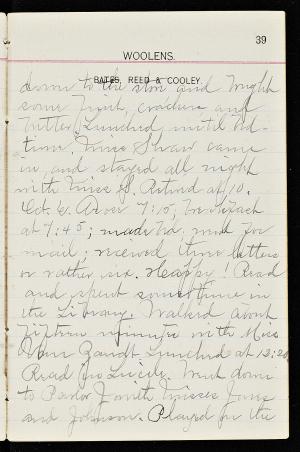 39
WOOLENS.
BATES, REED & COOLEY.
down to the store and bought
some fruit, crackers and
butter. Lunched until bed-
time. Miss Shaw came
in, and stayed all night
with Miss S. Retired at 10.
Oct. 6. Arose 7:15, breakfast
at 7:45; made bed, and for
mail; received three letters
or rather six. Happy! Read
and spent some time in
the Library. Walked about
fifteen minutes with Miss
Van Zandt. Lunched at 12:20
Read to Lucile. Went down
to Parlor J with Misses Jane
and Johnson. Played in the